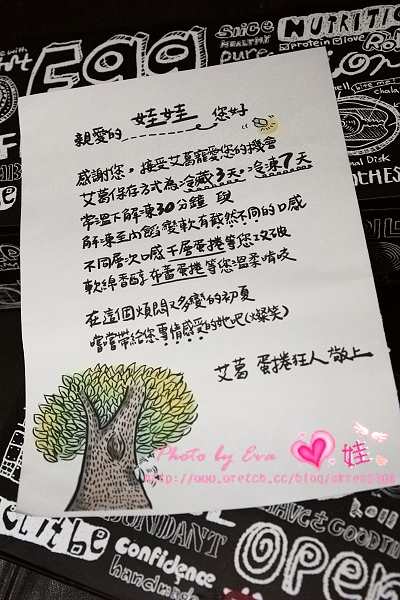 Egg
Since
HEALTHY
pure
NUTRITION
protein
love
親愛的 娃娃 您好
感謝您,接受艾葛寵愛您的機會
艾葛保存方式為冷藏3天,冷凍7天
常溫下解凍30分鐘 與
解凍至內餡變軟有截然不同的口感
不同層次口感千層蛋捲等您攻破
軟綿香醇布蕾蛋捲等您溫柔啃咬
在這個煩悶又多變的初夏
嚐嚐帶給您事情感受的她吧(燦笑)
艾葛 蛋捲狂人 敬上
Photo by Eva
娃
http://www.wretch.cc/blog/
Let it be
confidence
handmade
OPEN